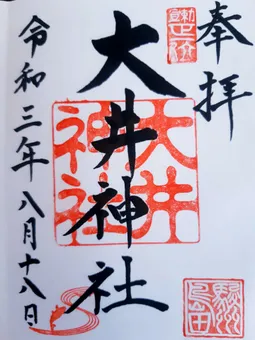 奉拝
大井神社
大井神社
令和三年八月十八日